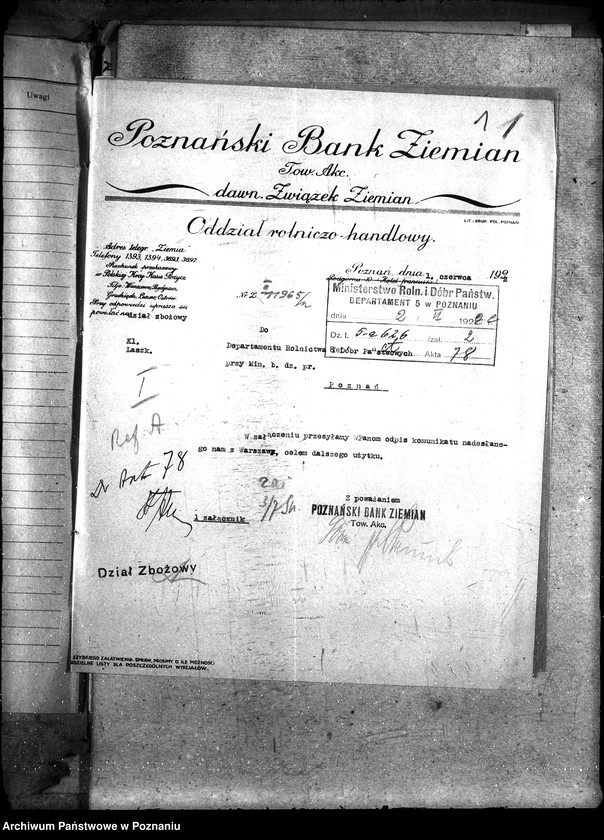 Uwagi
11
Poznański Bank Ziemian
Tow. Akc.
dawn. Związek Ziemian
LIT.-DRUK. POL. POZNAŃ
Oddział rolniczo-handlowy.
Adres telegr. Ziemia
Telefony 1393, 1394, 3693, 3697.
Rachunek przekazowy
w Polskiej Kraj. Kasie Pożycz.
Filje: Warszawa, Bydgoszcz,
Grudziądz,
Przy odpowiedzi uprasza się
powołać na:
dział zbożowy
Poznań, dnia 1. czerwca 1922
Ministerstwo Roln. i Dóbr Państw.
DEPARTAMENT 5 w POZNANIU
dnia 2 / VI 1922
Dz. I. 5-a 626 /zał. 2
Akta 78
№ Z. 11965/2
Do
Departamentu Rolnictwa i Dóbr Państwowych
przy Min. b. dz. pr.
Poznań
Kl.
Laszk.
I
Ref. A
78
W załączeniu przesyłamy WPanom odpis komunikatu nadesłane-
go nam z Warszawy, celem dalszego użytku.
1 załącznik
Z poważaniem
POZNAŃSKI BANK ZIEMIAN
Tow. Akc.
Dział Zbożowy
SZYBKIEGO ZAŁATWIENIA SPRAW, PROSIMY O ILE MOŻNOŚCI
ODZIELNE LISTY DLA POSZCZEGÓLNYCH WYDZIAŁÓW.
Archiwum Państwowe w Poznaniu